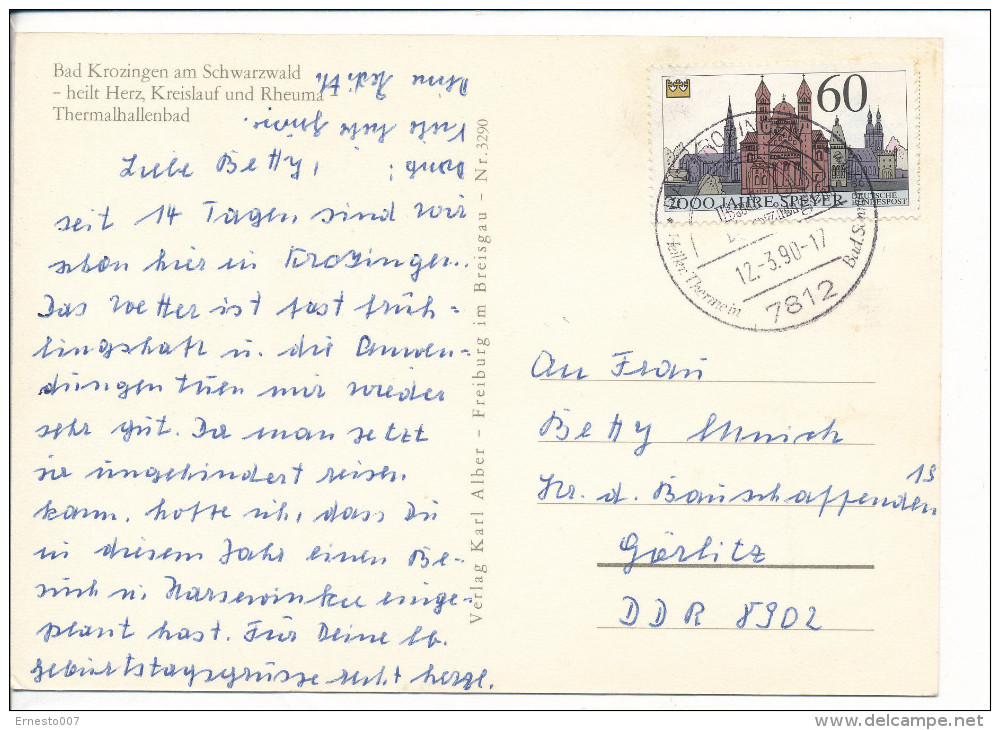 Bad Krozingen am Schwarzwald
– heilt Herz, Kreislauf und Rheuma
Thermalhallenbad
Liebe Betty,
seit 14 Tagen sind wir
schon hier in Krozingen.
Das Wetter ist fast früh=
lingshaft u. die Anwen=
dungen tuen mir wieder
sehr gut. Da man jetzt
ja ungehindert reisen
kann, hoffe ich, dass Du
in diesem Jahr einen Be=
such in Harsewinkel einge=
plant hast. Für Deine lb.
Geburtstagsgrüsse recht herzl.
Dank!
Liebe Grüsse
Deine
Verlag Karl Alber – Freiburg im Breisgau – Nr. 3290
60
2000 JAHRE SPEYER
DEUTSCHE BUNDESPOST
12.-3.90-17
7812
An Frau
Betty
Str. d. Bauschaffenden 19
Görlitz
DDR 8902
Ernesto007
delcampe.net